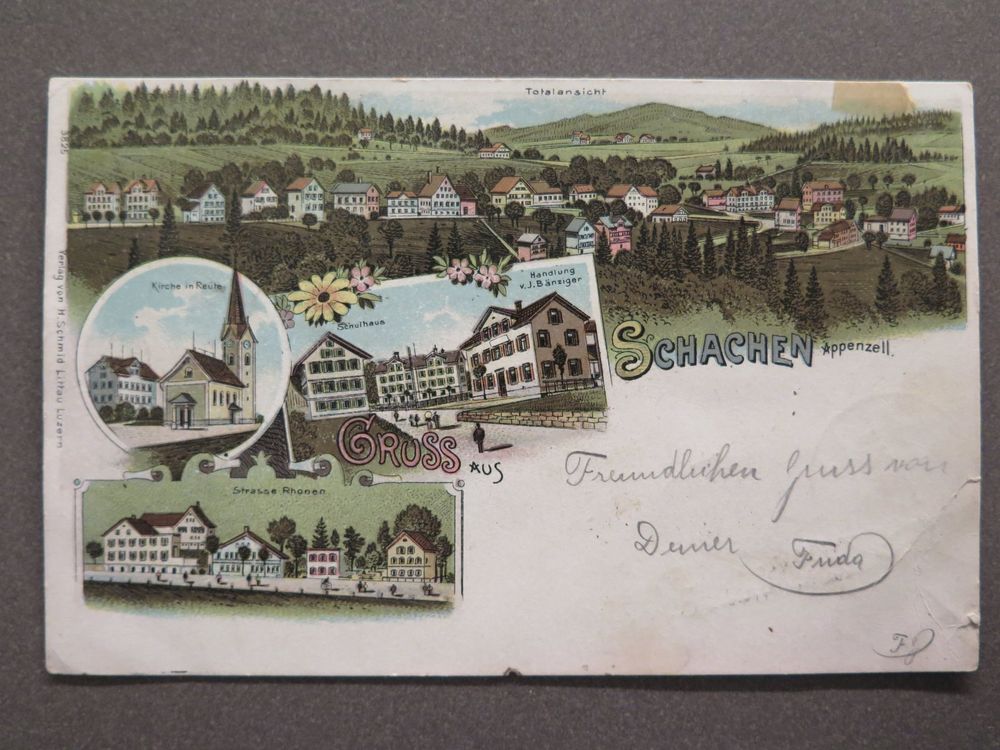 Totalansicht
3825
Verlag von H. Schmid Littau Luzern
Kirche in Reute
Schulhaus
Handlung
v. J. Bänziger
SCHACHEN Appenzell.
GRUSS AUS
Strasse Rhonen
Freundlichen Gruss von
Deiner Frida
F